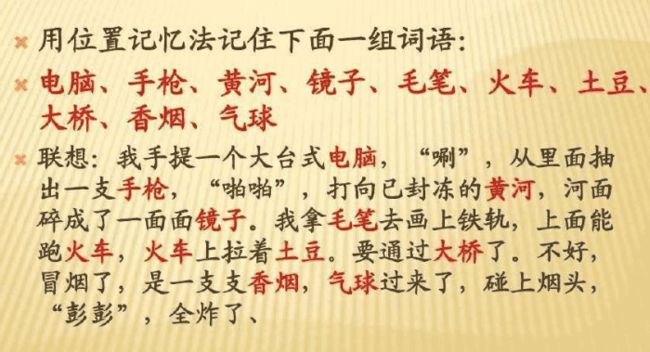 用位置记忆法记住下面一组词语：
电脑、手枪、黄河、镜子、毛笔、火车、土豆、
大桥、香烟、气球
联想：我手提一个大台式电脑，“唰”，从里面抽
出一支手枪，“啪啪”，打向已封冻的黄河，河面
碎成了一面面镜子。我拿毛笔去画上铁轨，上面能
跑火车，火车上拉着土豆。要通过大桥了。不好，
冒烟了，是一支支香烟，气球过来了，碰上烟头，
“彭彭”，全炸了、